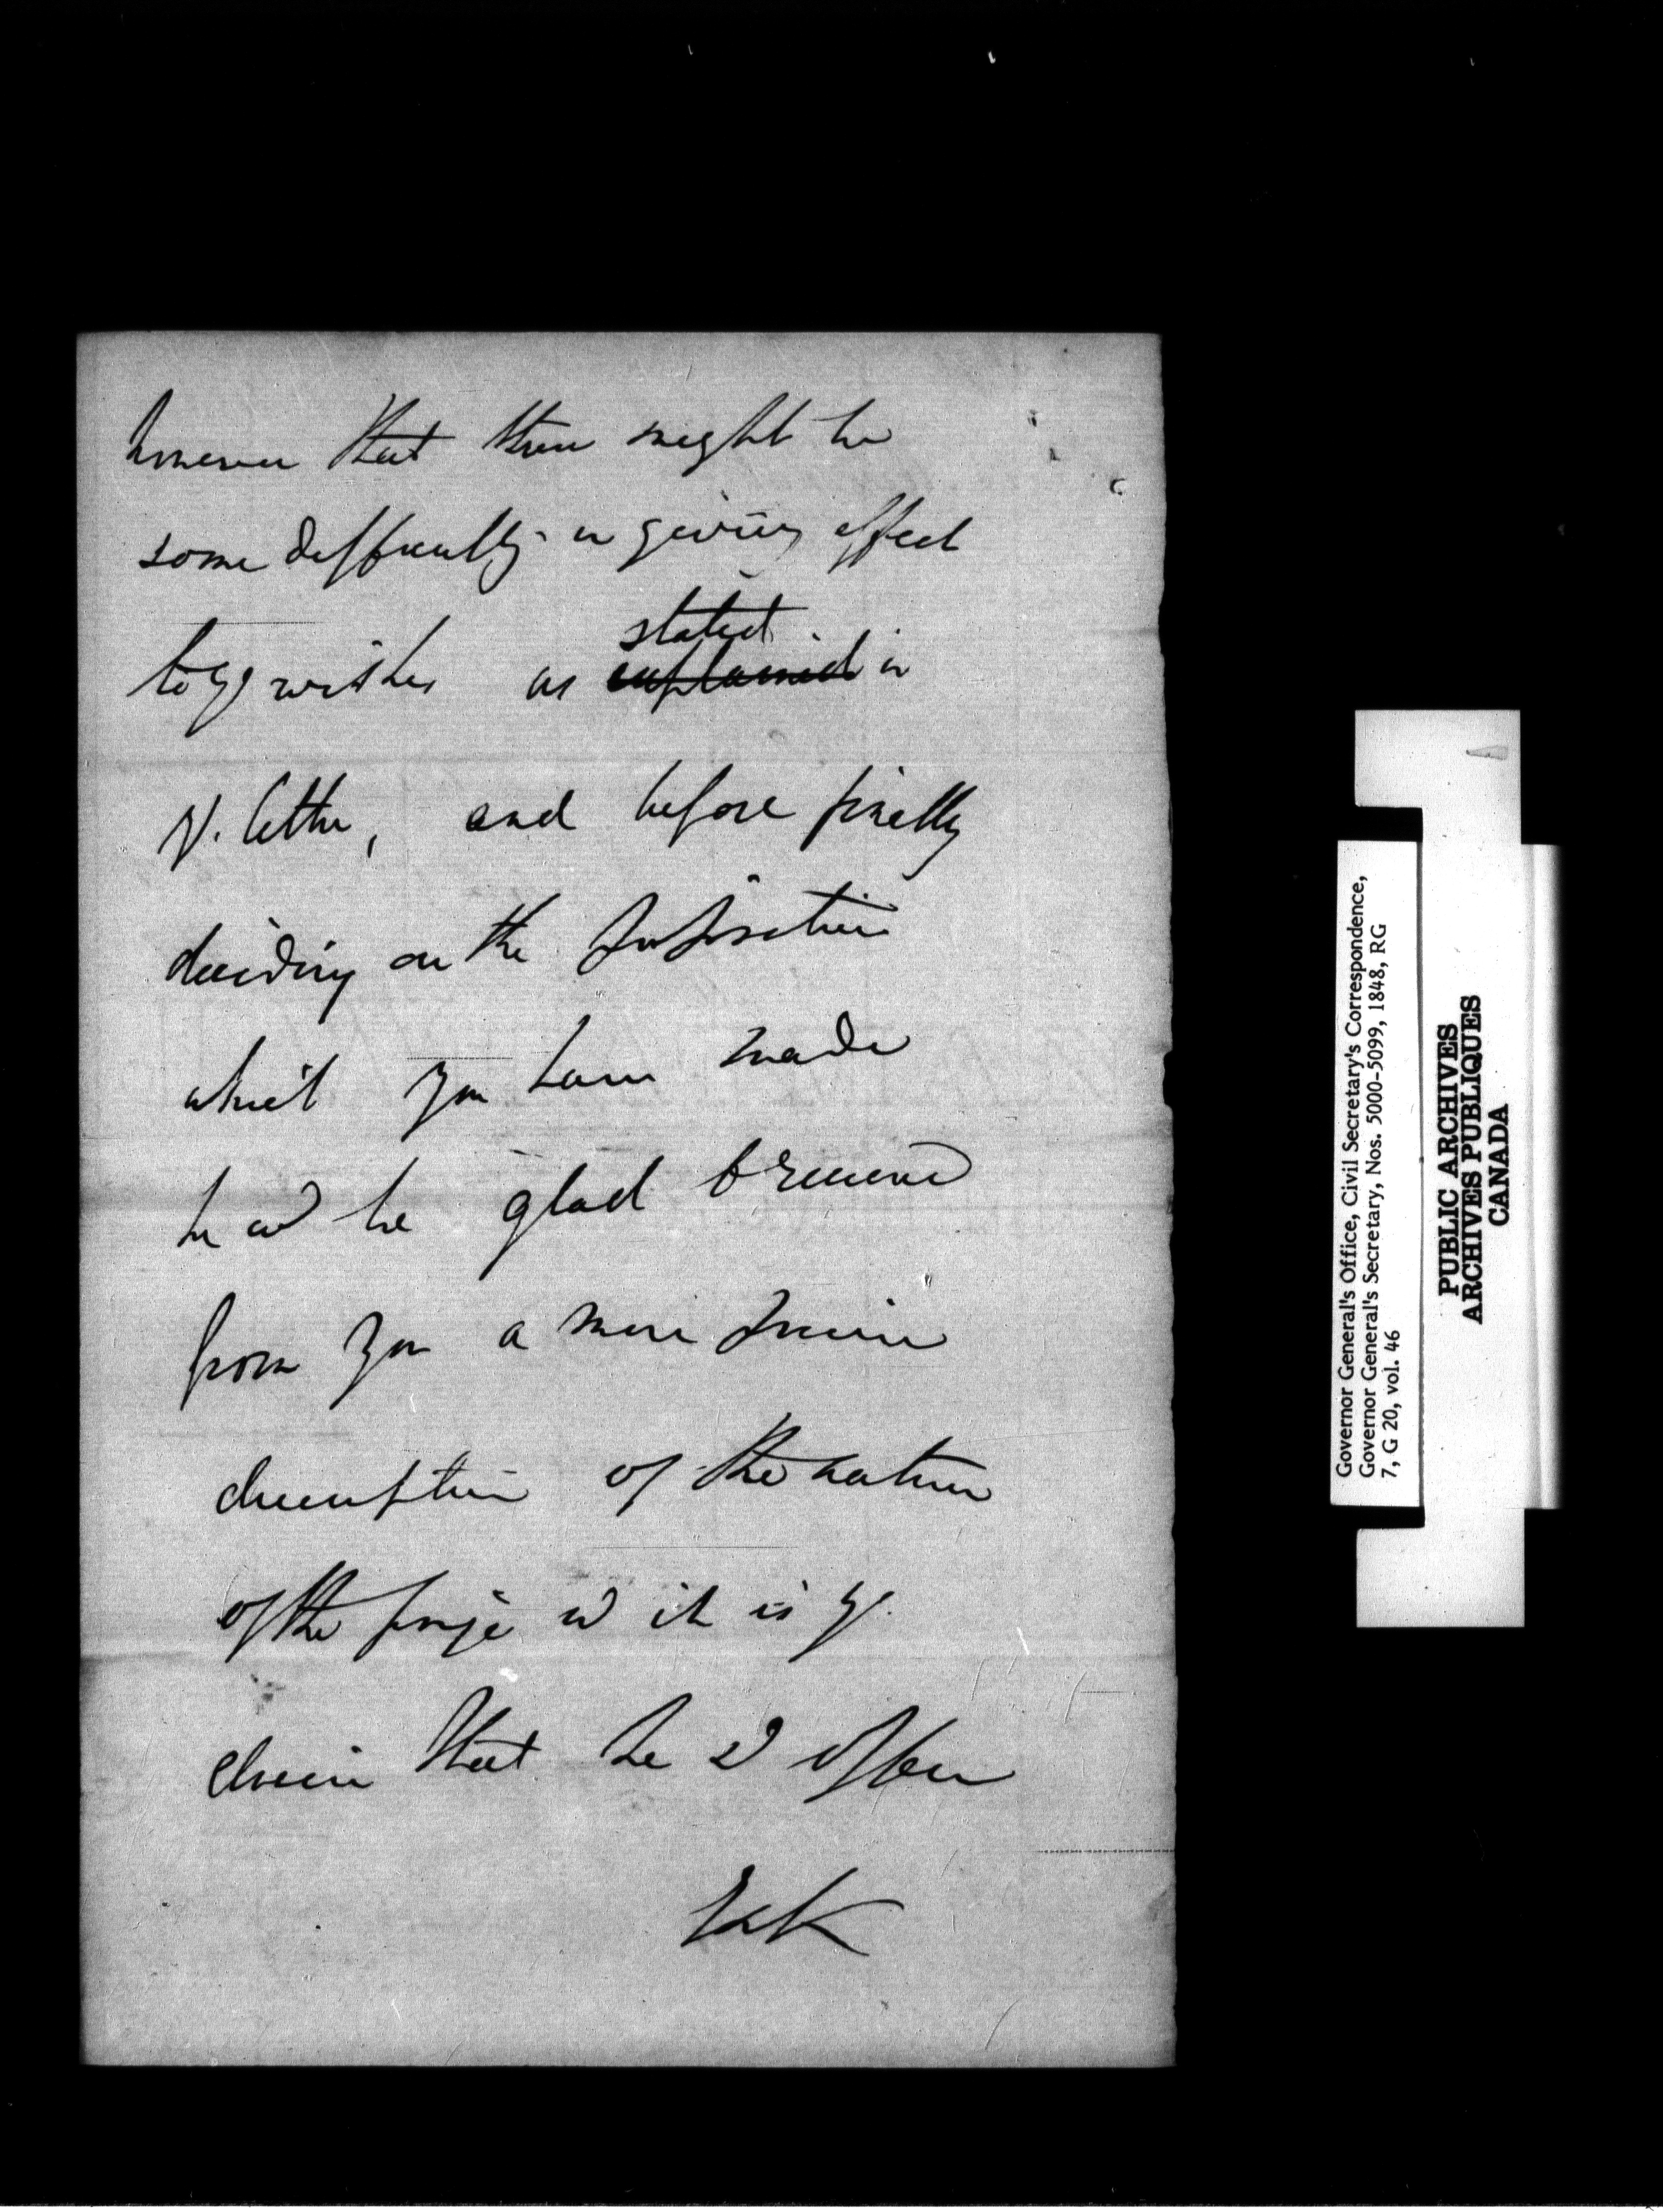 however that there might be
some difficulty in giving effect
to yr wishes as stated explained in
yr. letter, and before finally
deciding on the proposition
which you have made
he wd be glad to receive
from you a more precise
description of the nature
of the it is yr.
desire that he offer
Governor General's Office, Civil Secretary's Correspondence,
Governor General's Secretary, Nos. 5000-5099, 1848, RG
7, G 20, vol. 46
PUBLIC ARCHIVES
ARCHIVES PUBLIQUES
CANADA